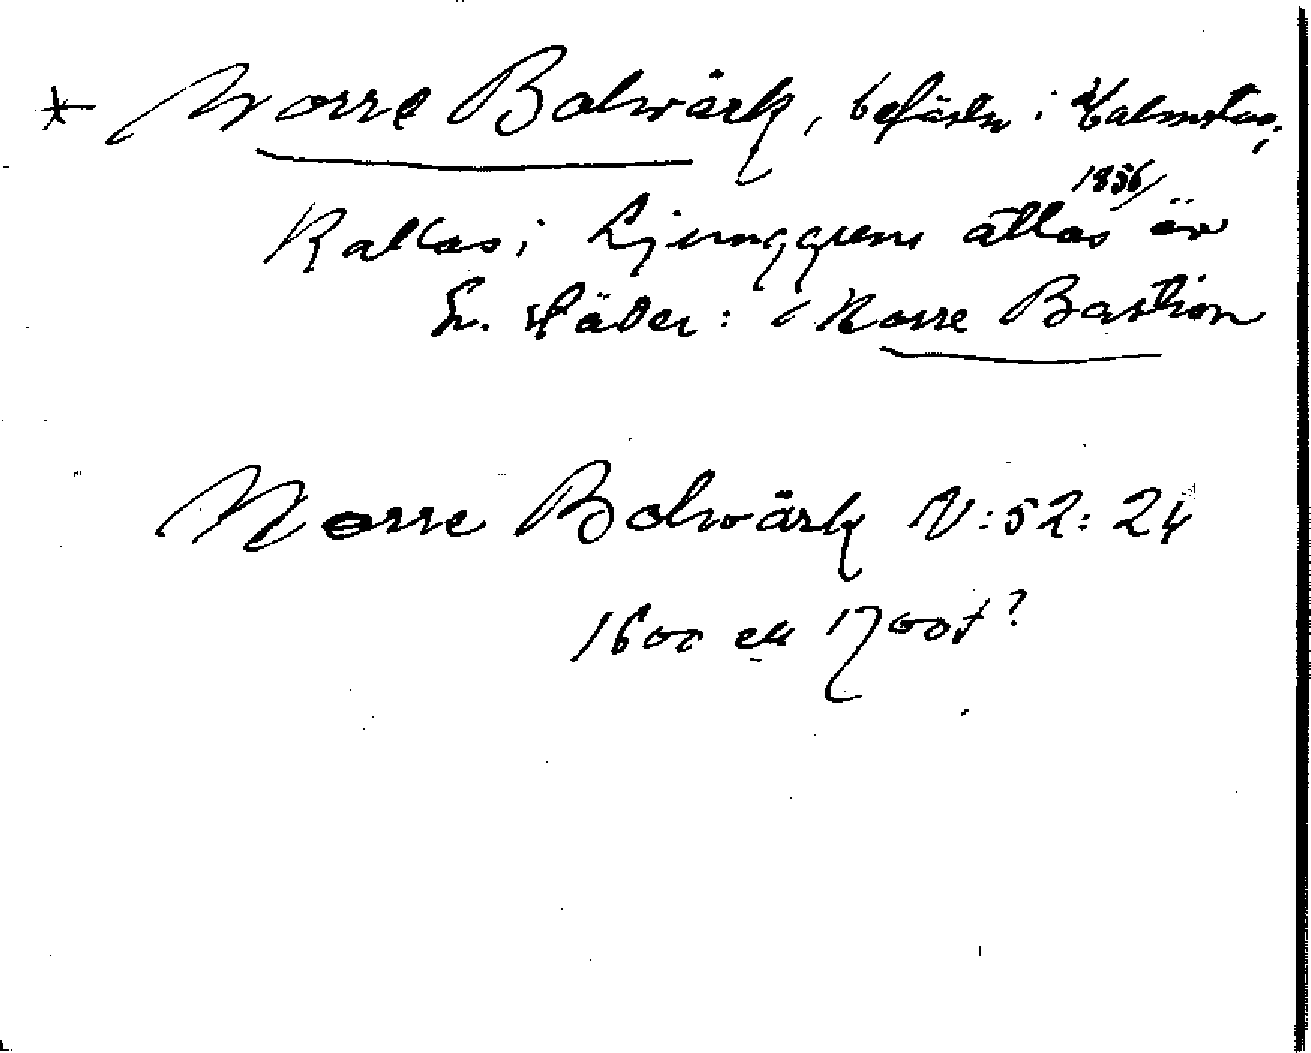 * Norre Bolwärk, befästn i Halmstad;
Kallas i Ljunggrens atlas 1856/ öv
Sv. städer: Norre Bastion
Norre Bolwärk V:52:24
1600 el 1700t?